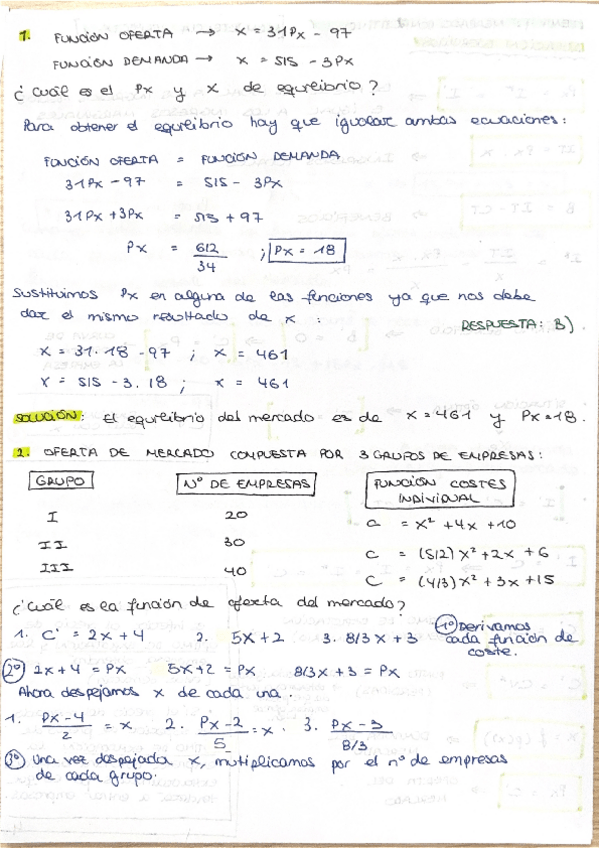 1. FUNCIÓN OFERTA → X = 31Px - 97
FUNCIÓN DEMANDA → X = 515 - 3Px
¿Cuál es el Px y X de equilibrio?
Para obtener el equilibrio hay que igualar ambas ecuaciones:
FUNCIÓN OFERTA = FUNCIÓN DEMANDA
31Px - 97 = 515 - 3Px
31Px + 3Px = 515 + 97
Px = 612/34 ; Px = 18
Sustituimos Px en alguna de las funciones ya que nos debe
dar el mismo resultado de x :
RESPUESTA: B)
X = 31·18 - 97 ; X = 461
X = 515 - 3.18 ; X = 461
SOLUCIÓN: El equilibrio del mercado es de X = 461 y Px = 18.
2. OFERTA DE MERCADO COMPUESTA POR 3 GRUPOS DE EMPRESAS:
GRUPO Nº DE EMPRESAS FUNCIÓN COSTES INDIVIDUAL
I 20 C = X² + 4X + 10
II 30 C = (5/2)X² + 2X + 6
III 40 C = (4/3)X² + 3X + 15
¿Cuál es la función de oferta del mercado?
1. C' = 2X + 4 2. 5X + 2 3. 8/3X + 3
1º Derivamos
cada función de
coste.
2º 2X + 4 = Px 5X + 2 = Px 8/3X + 3 = Px
Ahora despejamos X de cada una.
1. Px - 4/2 = X 2. Px - 2/5 = X · 3. Px - 3/8/3
3º Una vez despejada X, multiplicamos por el nº de empresas
de cada grupo.